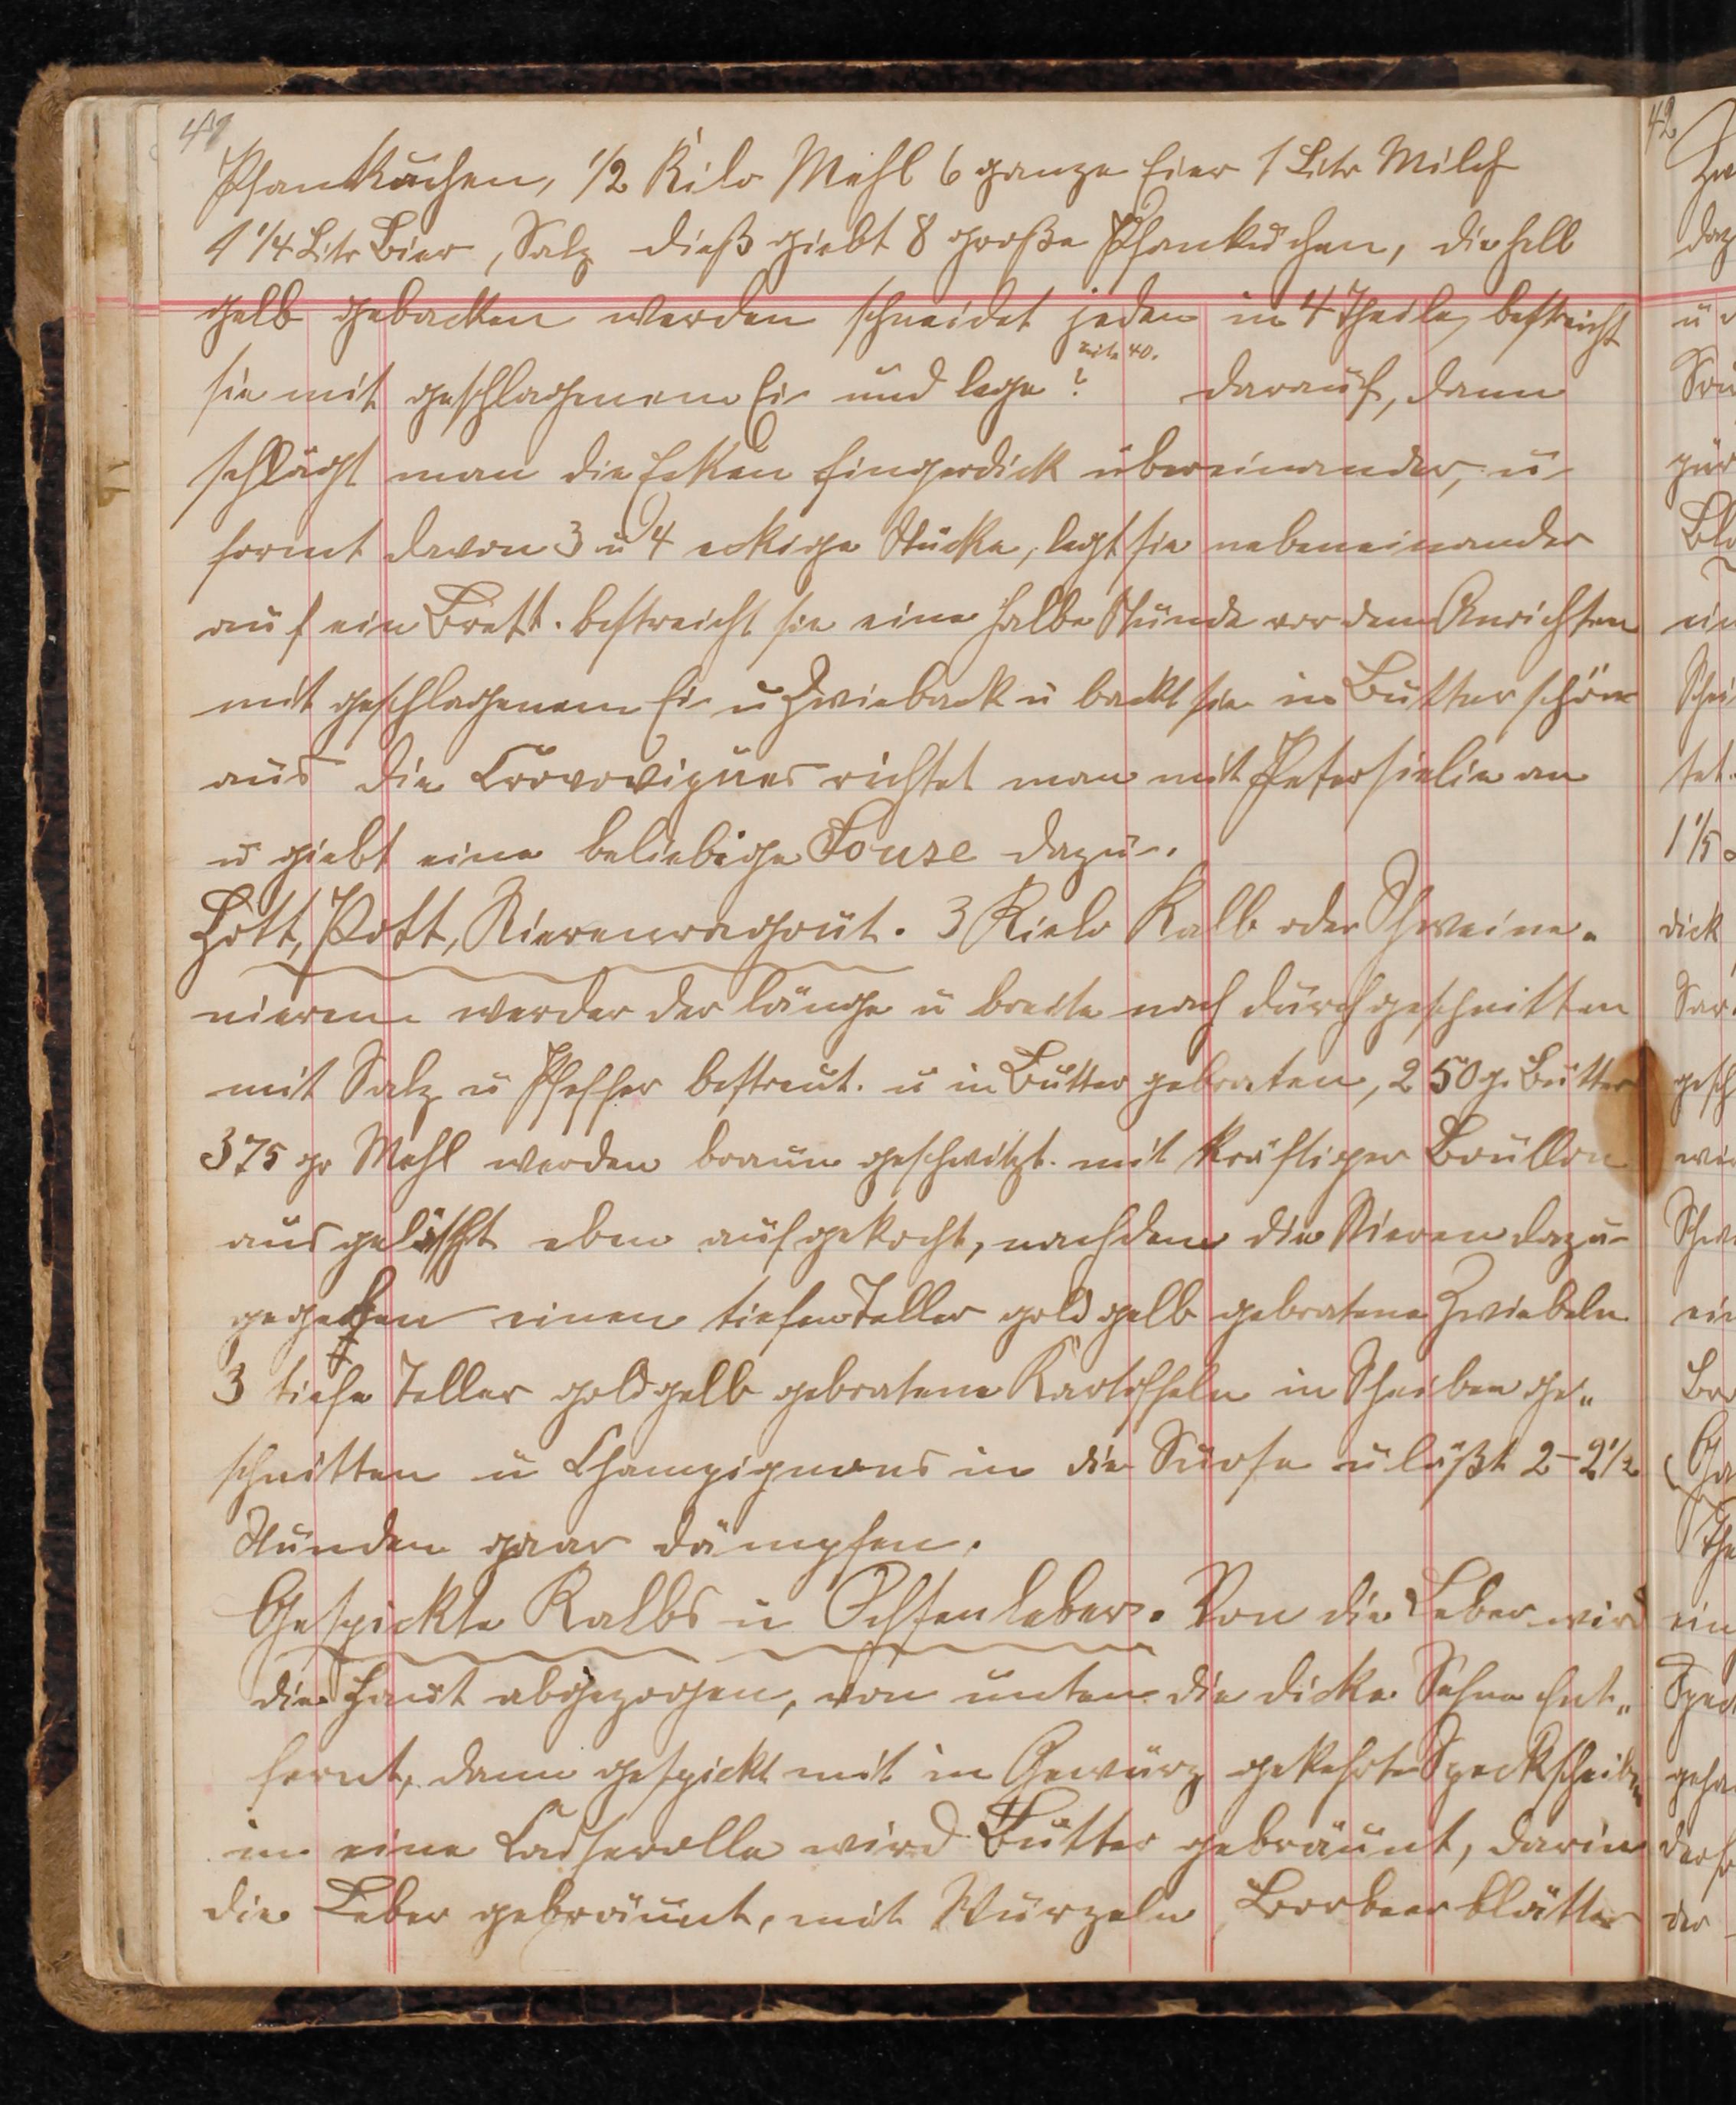 41
Pfankuchen, 1/2 Kilo Mehl 6 ganze Eier 1 Litr Milch
1 1/4 Litr Bier, Salz dieß giebt 8 große Pfankuchen, die hell
gelb gebacken werden schneidet jeden in 4 Theile, bestreicht
seite 40.
sie mit geschlagenem Ei und lege ? darauf, dann
schlägt man die Ecken fingerdick übereinander, u
formt davon 3 u 4 eckige Stücke, legt sie nebeneinander
auf ein Brett. bestreicht sie eine halbe Stunde vor dem Anrichten
mit geschlagenem Ei u Zwieback u backt sie in Butter schön
aus die richtet man mit Petersielie an
u giebt eine beliebige Souse dazu.
Hott, Pott, Nierenragout. 3 Kielo Kalb oder Schweine-
nieren werder der länge u breite nach durchgeschnitten
mit Salz u Pfeffer bestreut. u in Butter gebraten, 250 gr Butter
375 gr Mehl werden braun geschwitzt. mit kräftiger Boullon
ausgelöscht eben aufgekocht, nachdem die Nieren dazu-
gegeben einen tiefen Teller gold gelb gebratene Zwiebeln
3 tiefe Teller goldgelb gebratene Kartoffeln in Scheiben ge-
schnitten u Champignons in die Suose u läßt 2-2 1/2
Stunden gaar dämpfen.
Gespickte Kalbs u Ochsenleber. Von die Leber wird
die Haut abgezogen, von unten die dicke Sehne ent-
fernt, dann gespickt mit in Gewürz gekehrte Speckscheiben
in eine Casserolle wird Butter gebräunt, darin
die Leber gebräunt, mit Wurzeln, Lorbeerblätter
42